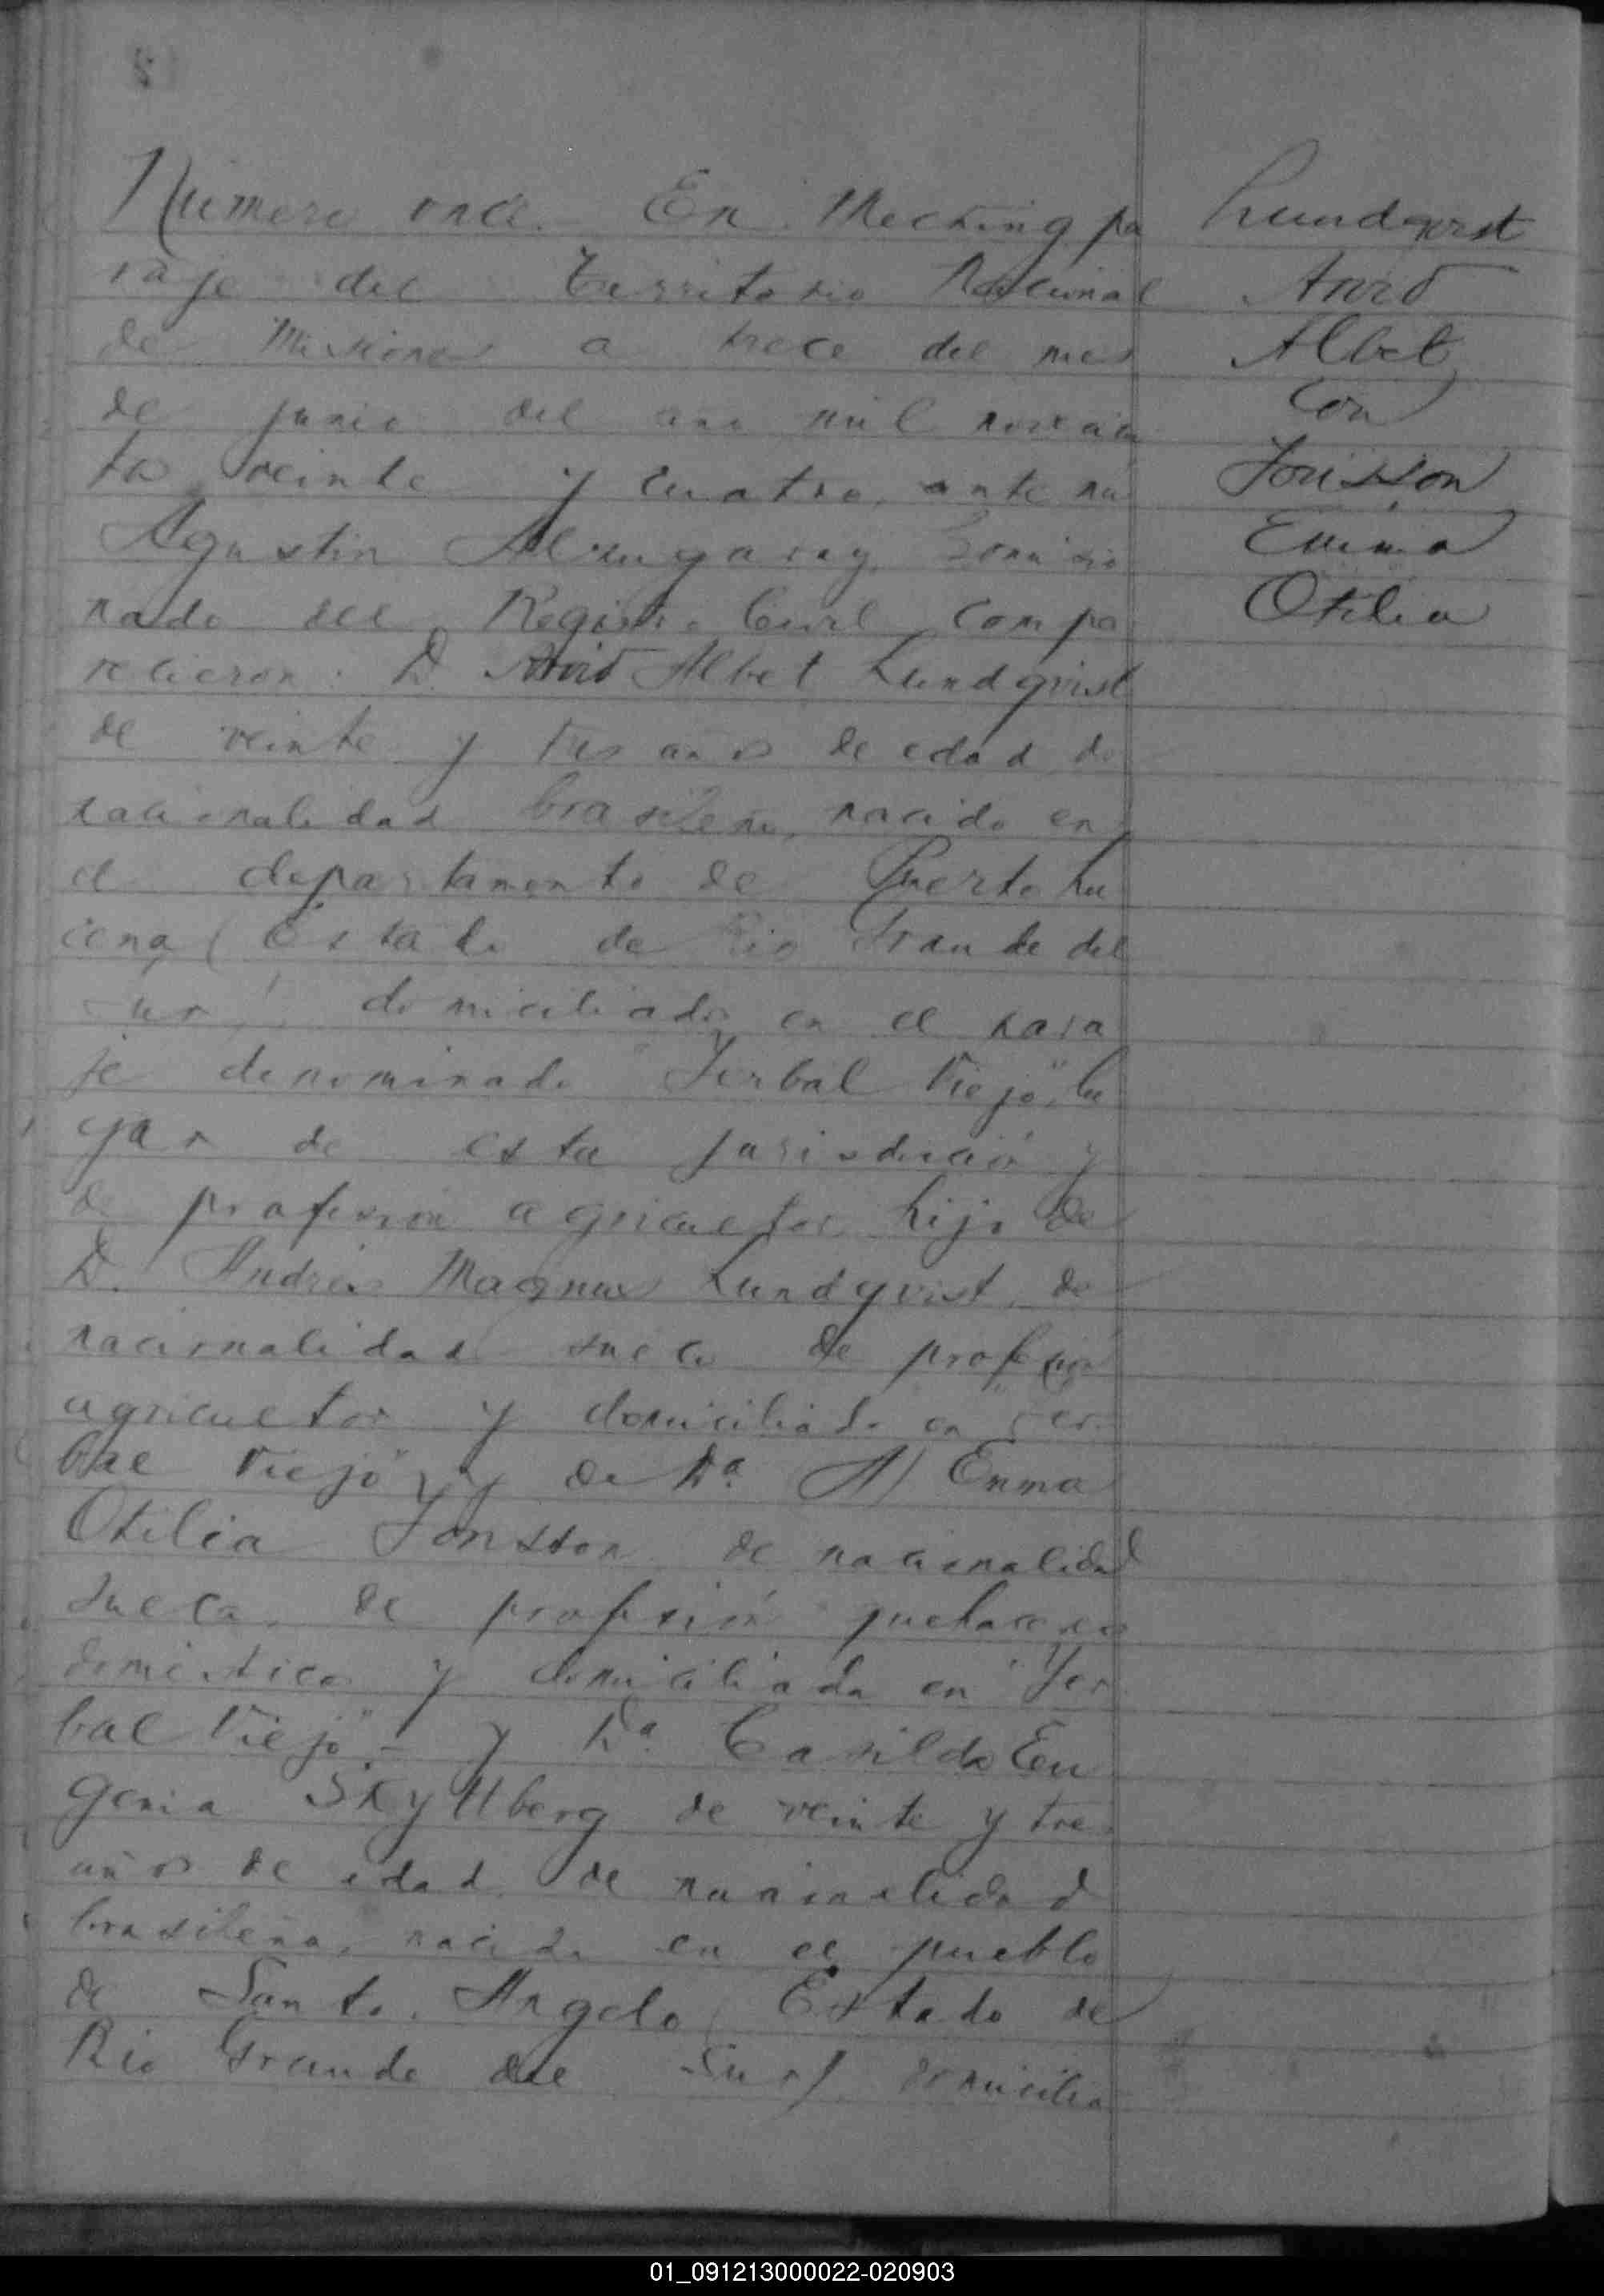 Número once. En Mecking pa
raje del Territorio Nacional
de Misiones a trece del mes
de junio del año mil novecien
tos veinte y cuatro, ante mi
Agustin Alzugaray, Comisio
nado del Registro Civil compa
recieron: D. Arvid Albet Lundqvist
de veinte y tres años de edad de
nacionalidad brasileño, nacido en
el departamento de Puerto Lu
cena (Estado de Rio Grande del
Sur), domiciliado en el para
je denominado "Yerbal Viejo", lu
gar de esta jurisdicción y
de profesión agricultor hijo de
D. Andrés Magnus Lundqvist, de
nacionalidad sueca de profesión
agricultor y domiciliado en "Yer
bal Viejo", y de Da. A/ Emma
Otilia Jonsson de nacionalidad
sueca, de profesión quehaceres
domésticos y domiciliada en "Yer
bal Viejo".- y Da. Casilda Eu
genia Skyllberg de veinte y tres
años de edad, de nacionalidad
brasileña, nacida en el pueblo
de Santo Angelo (Estado de
Rio Grande del Sur) domicilia
Lundqvist
Arvid
Albet
con
Jonsson
Emma
Otilia
01_091213000022-020903